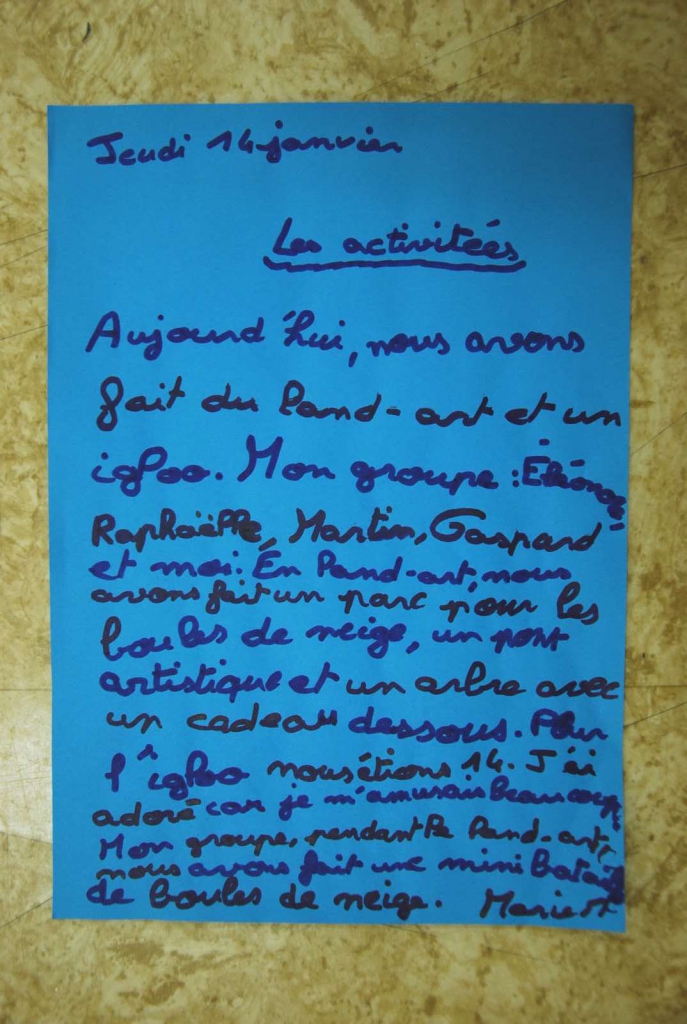 Jeudi 14 janvier
Les activitées
Aujourd'hui, nous avons
fait du land-art et un
igloo. Mon groupe : Éléonore,
Raphaëlle, Martin, Gaspard
et moi. En land-art, nous
avons fait un parc pour les
boules de neige, un pont
artistique et un arbre avec
un cadeau dessous. Pour
l'igloo nous étions 14. J'ai
adoré car je m'amusais beaucoup.
Mon groupe, pendant le land-art,
nous avons fait une mini bataille
de boules de neige. Marie M